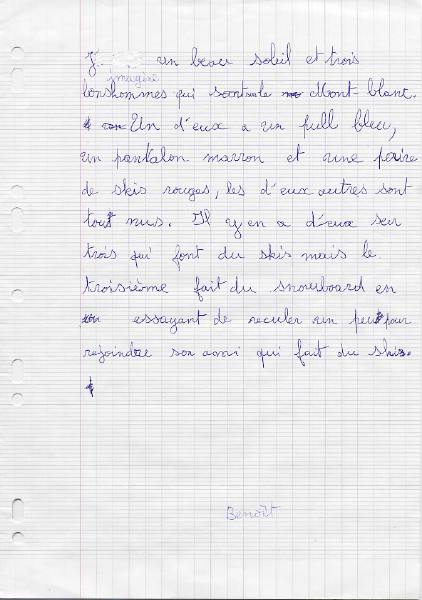 J' un beau soleil et trois
imagine
bonshommes qui sont le Mont blanc.
Un d'eux a un pull bleu,
un pantalon marron et une paire
de skis rouges, les d'eux autres sont
tout nus. Il y en a d'eux sur
trois qui font du skis mais le
troisième fait du snowboard en
essayant de reculer un peu pour
rejoindre son ami qui fait du skis.
Benoît